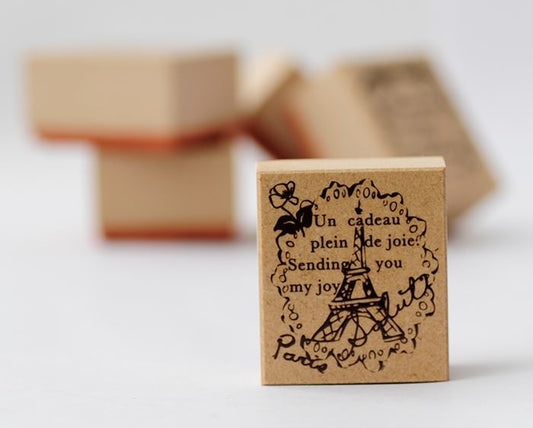 Un cadeau
plein de joie!
Sending you
my joy
Paris